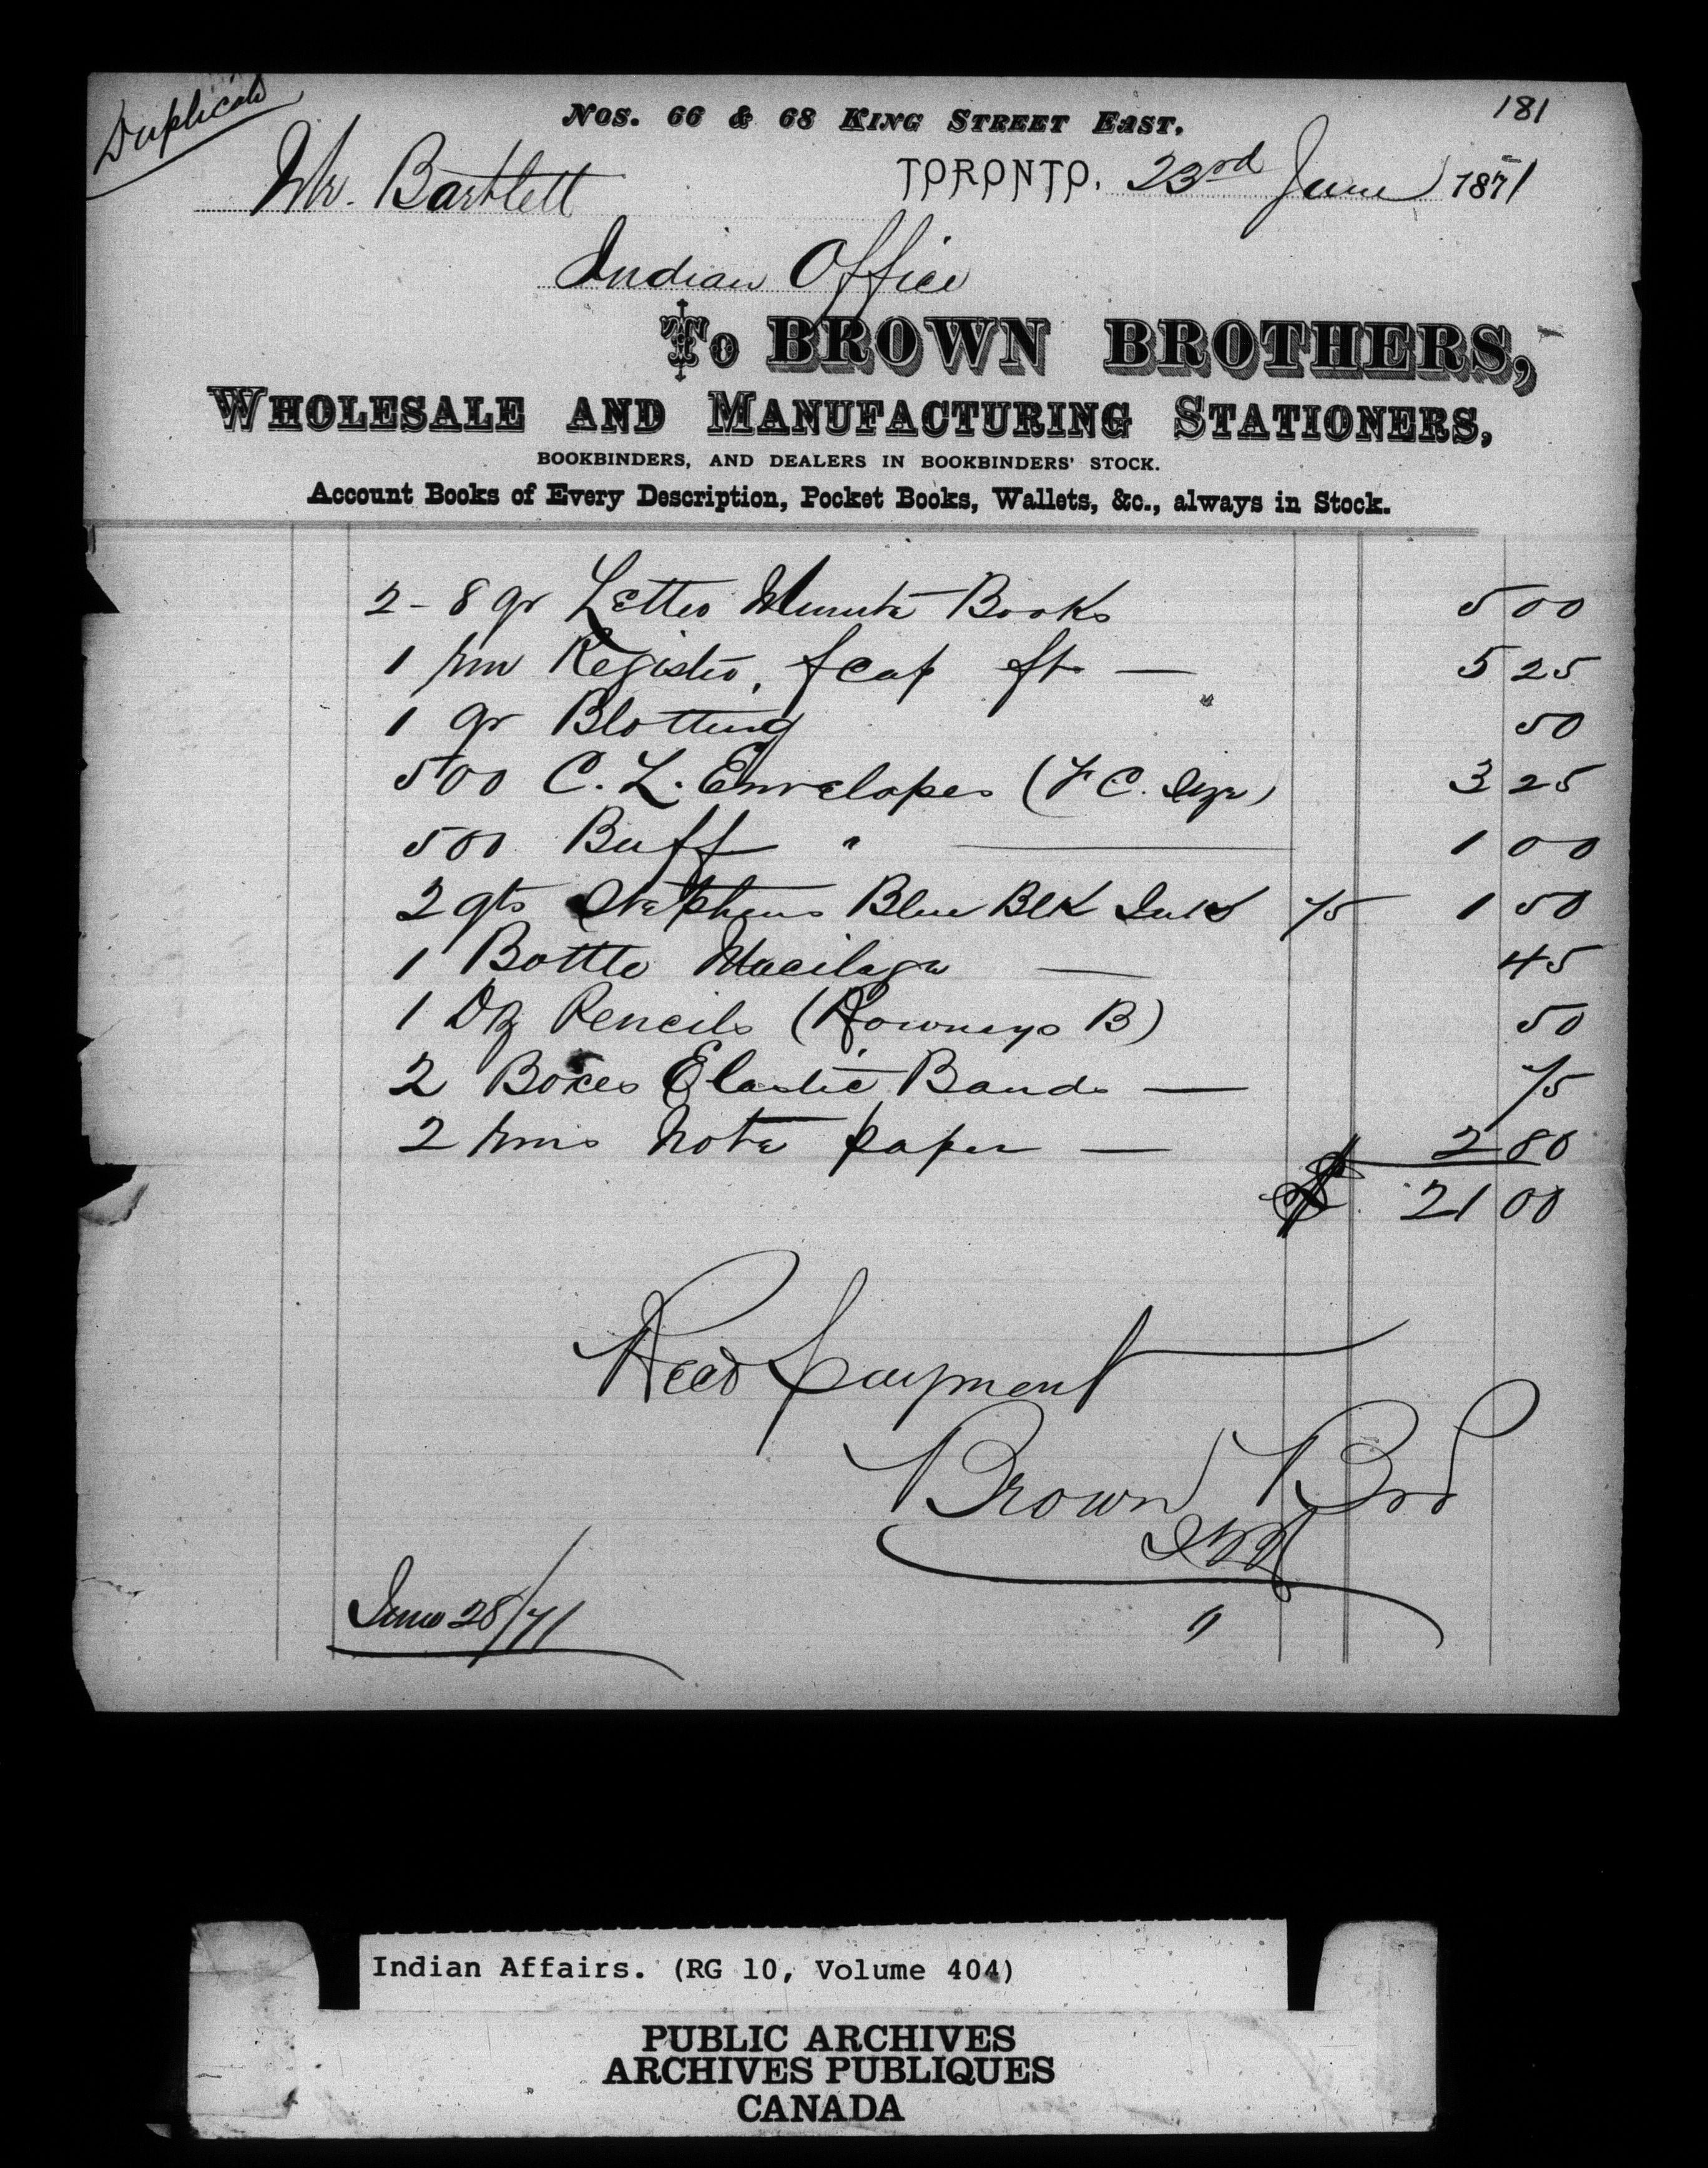 Duplicate
181
Nos. 66 & 68 King Street East,
Mr. Bartlett
TORONTO, 23rd June 1871
Indian Office
To BROWN BROTHERS,
WHOLESALE AND MANUFACTURING STATIONERS,
BOOKBINDERS, AND DEALERS IN BOOKBINDERS' STOCK.
Account Books of Every Description, Pocket Books, Wallets, &c., always in Stock.
2 - 8 qr Letter Minute Books 5 00
1 rm Register, fcap ft — 5 25
1 qr Blotting 50
500 C. L. Envelopes (F C. size) 3 25
500 Buff " — 1 00
2 qts Stephens Blue Blk Inks 75 1 50
1 Bottle Mucilage — 45
1 Dz Pencils (Rowneys B) 50
2 Boxes Elastic Bands — 75
2 rms Note paper — 2 80
$ 21 00
Recd payment
Brown Bros
June 28/71
Indian Affairs. (RG 10, Volume 404)
PUBLIC ARCHIVES
ARCHIVES PUBLIQUES
CANADA